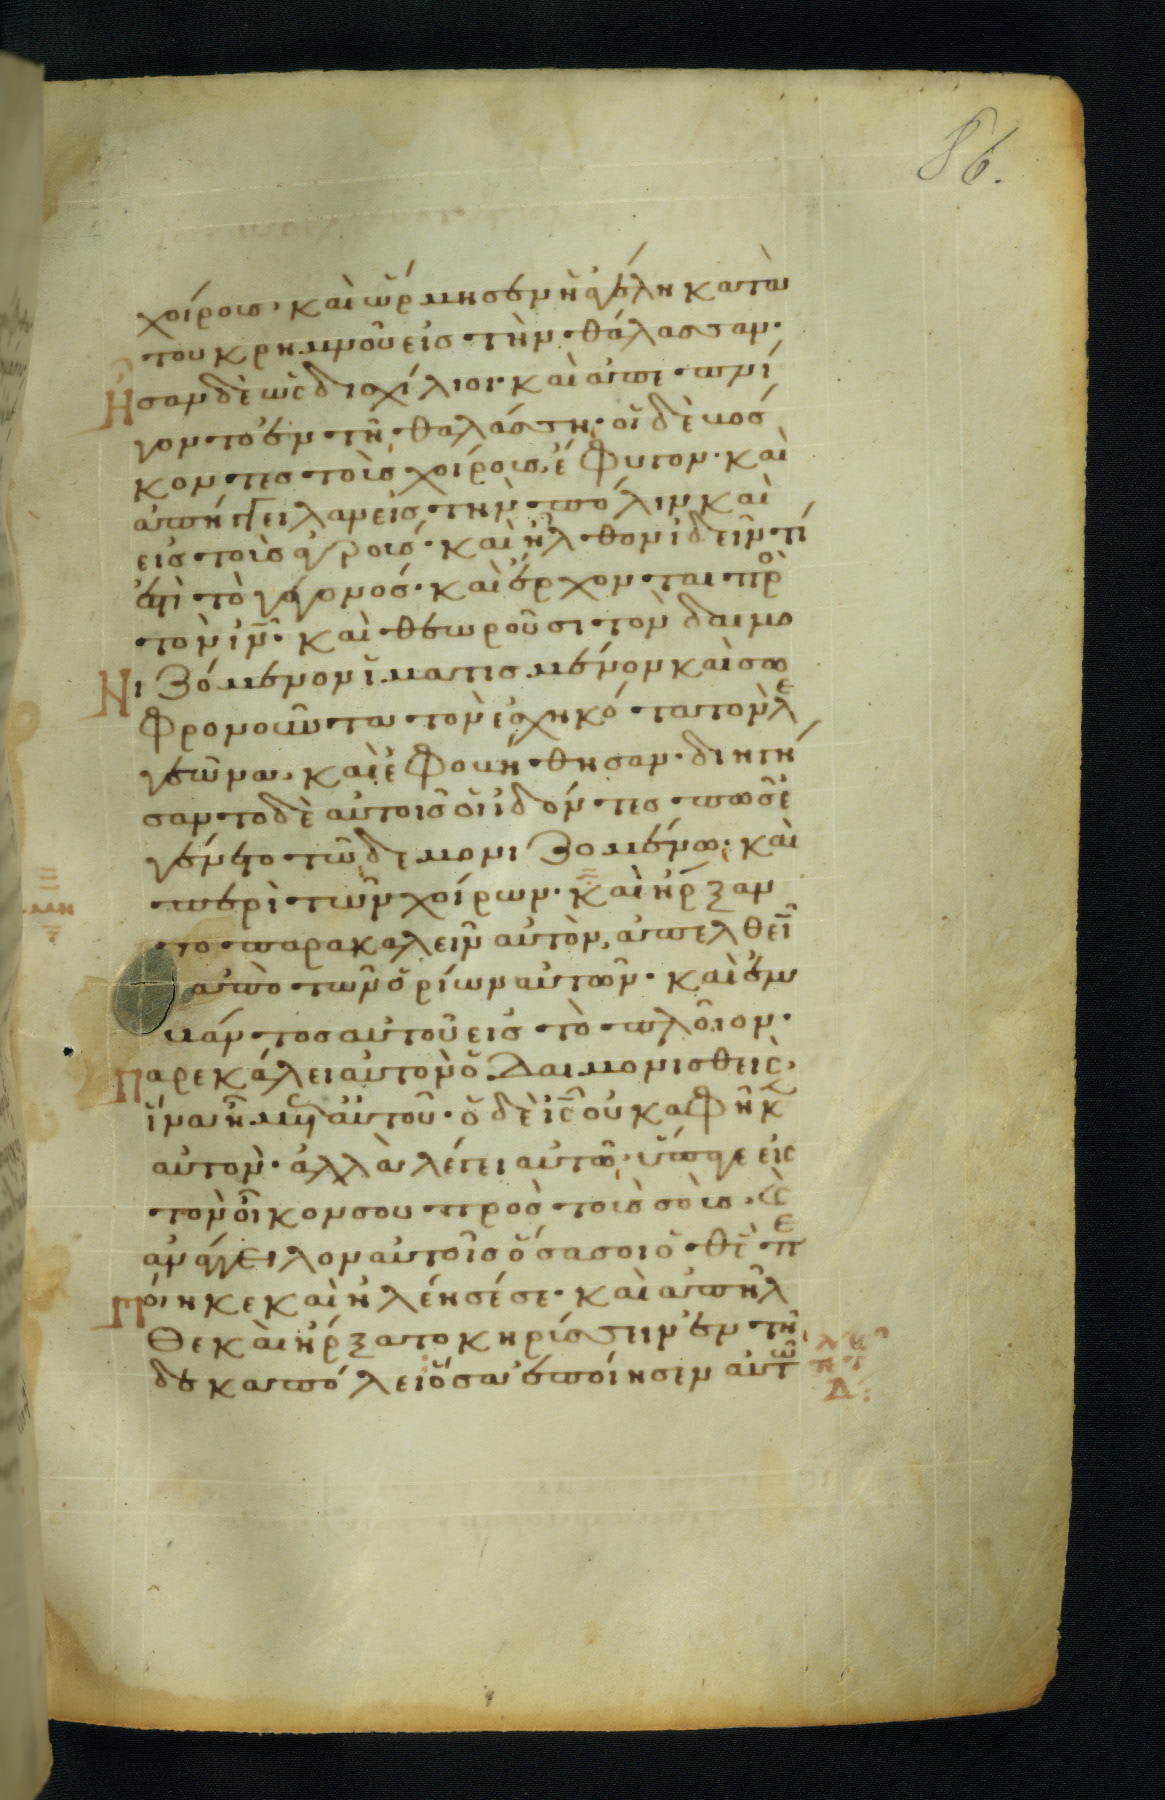 86.
χοίροισ· καὶ ὥρμησεν ἡ ἀγέλη κατὰ
του κρημνοῦ εἰσ τὴν θάλασσαν·
Ἦσαν δὲ ὡς διοχίλιοι· καὶ ἀπεπνί
γοντο ἐν τῆ θαλάσση· οἱ δὲ βοσ
κοντεσ τοὺσ χοίρουσ, ἔφυγον· καὶ
ἀπήγγειλαν εἰσ τὴν πόλιν καὶ
εἰσ τοὺσ ἀγρούσ· καὶ ἦλθον ἰδεῖν τί
ἐστι τὸ γεγονοσ· καὶ ἔρχονται πρὸ
τὸν ιν̅· καὶ θεωροῦσι τὸν δαιμο
Νιζόμενον ἱματισμένον καὶ σω
φρονοῦντα τὸν ἐσχηκότα τὸν λε
γεῶνα, καὶ ἐφοβήθησαν· διηγή
σαντο δὲ αὐτοισ οἱ ἰδόντεσ πῶσ ἐ
γένετο τῶ δεμονιζομένω· καὶ
περὶ τῶν χοίρων· καὶ ἤρξαν
το παρακαλεῖν αὐτὸν, ἀπελθεῖ
ἀπὸ τῶν ὁρίων αὐτῶν· καὶ ἐμ
βάντοσ αὐτοῦ εἰσ τὸ πλοῖον·
Παρεκάλει αὐτὸν ὁ δαιμονισθεὶς,
ἵνα ἦ μετ αὐτοῦ· ὁ δὲ ις̅ οὐκ αφῆκ
αὐτον· ἀλλὰ λέγει αὐτῶ· ὕπαγε εἰς
τὸν οἶκον σου πρὸσ τοὺσ σοὺσ· κ
ἀνάγγειλον αὐτοῖσ ὅσα σοι ὁ θς̅ πε
Πόιηκε καὶ ἠλέησέ σε· καὶ ἀπῆλ
θε καὶ ἤρξατο κηρύσσειν ἐν τῆ
δεκαπόλει ὅσα ἐποίησεν αὐτῶ